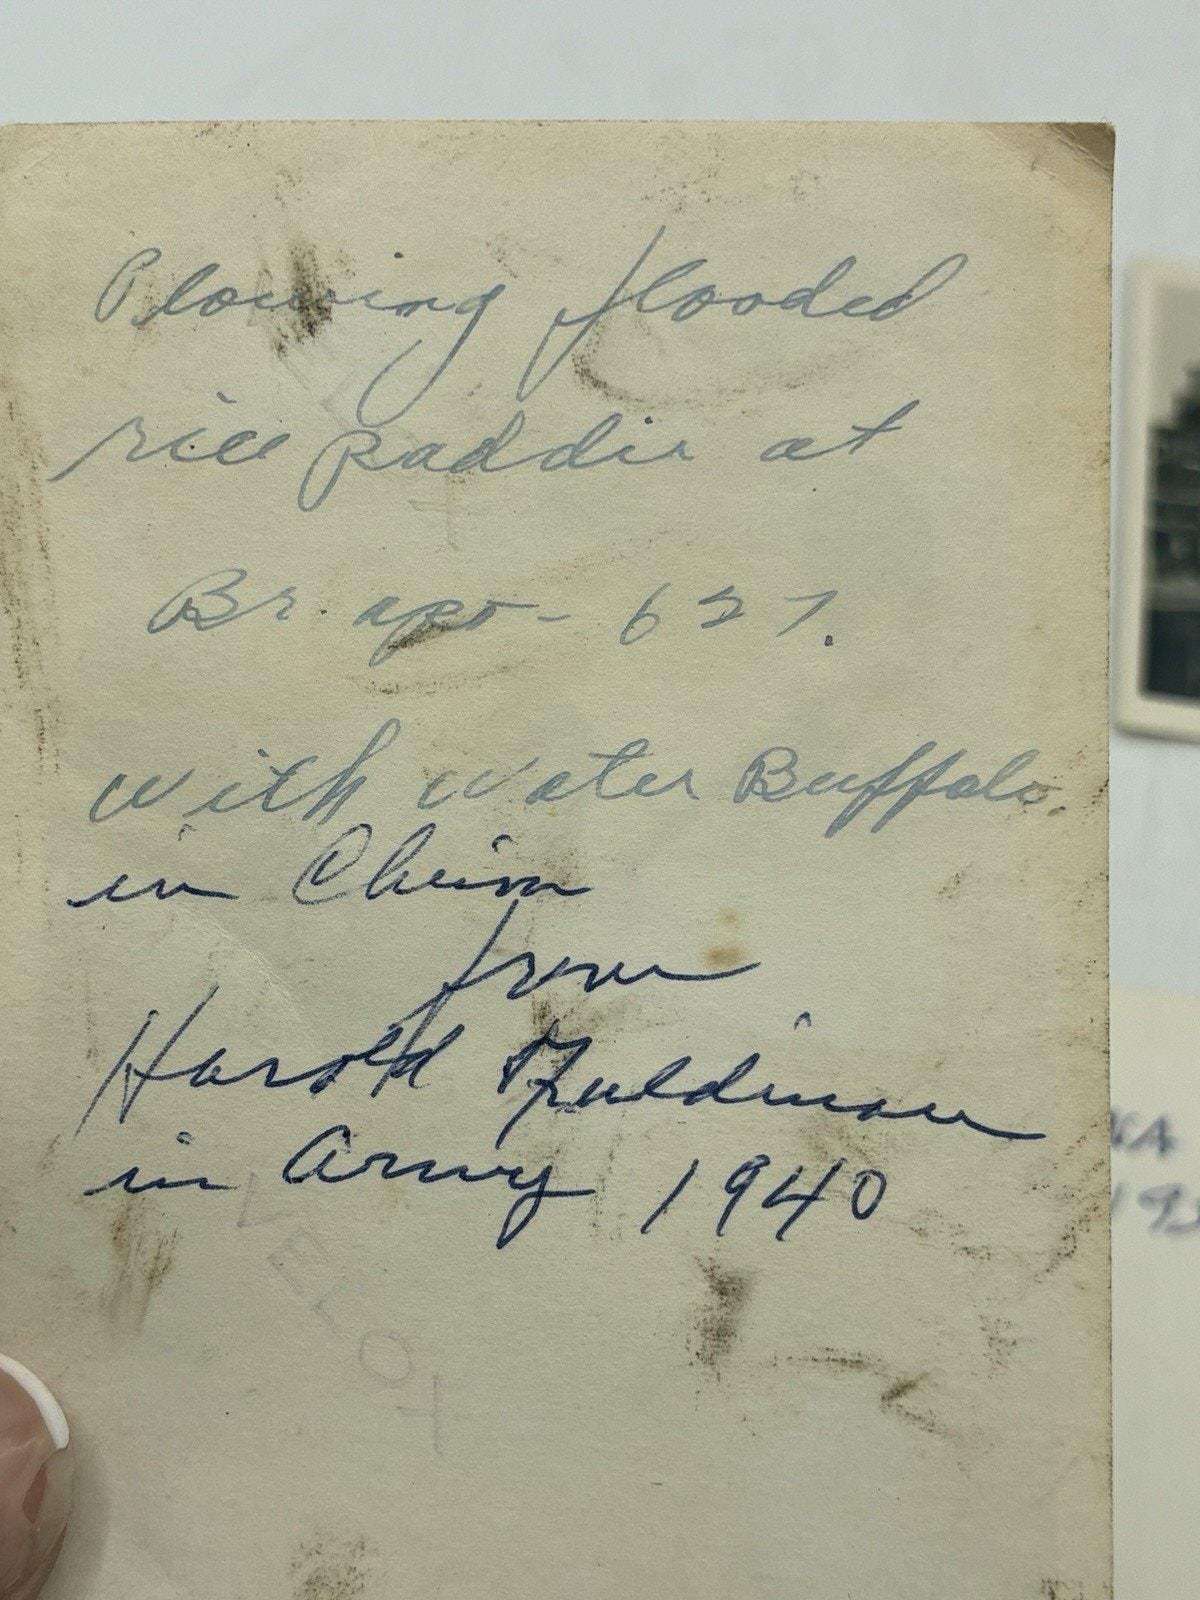 Plowing flooded
rice paddie at
Br. apo - 627.
with water Buffalo.
in China
from
Harold
in Army 1940
VELOX